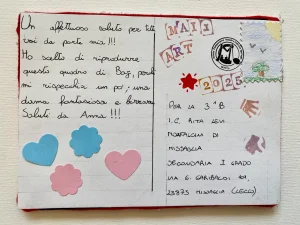 Un affettuoso saluto per tutti
voi da parte mia !!!
Ho scelto di riprodurre
questo quadro di Baj, perché
mi rispecchia un po', una
dama fantasiosa e bizzarra
Saluti da Anna !!!
MAIL
ART
2025
PER LA 3ª B
I.C. RITA LEVI
MONTALCINI DI
MISSAGLIA
SECONDARIA I GRADO
VIA E. GARIBALDI
23873 MISSAGLIA (LECCO)